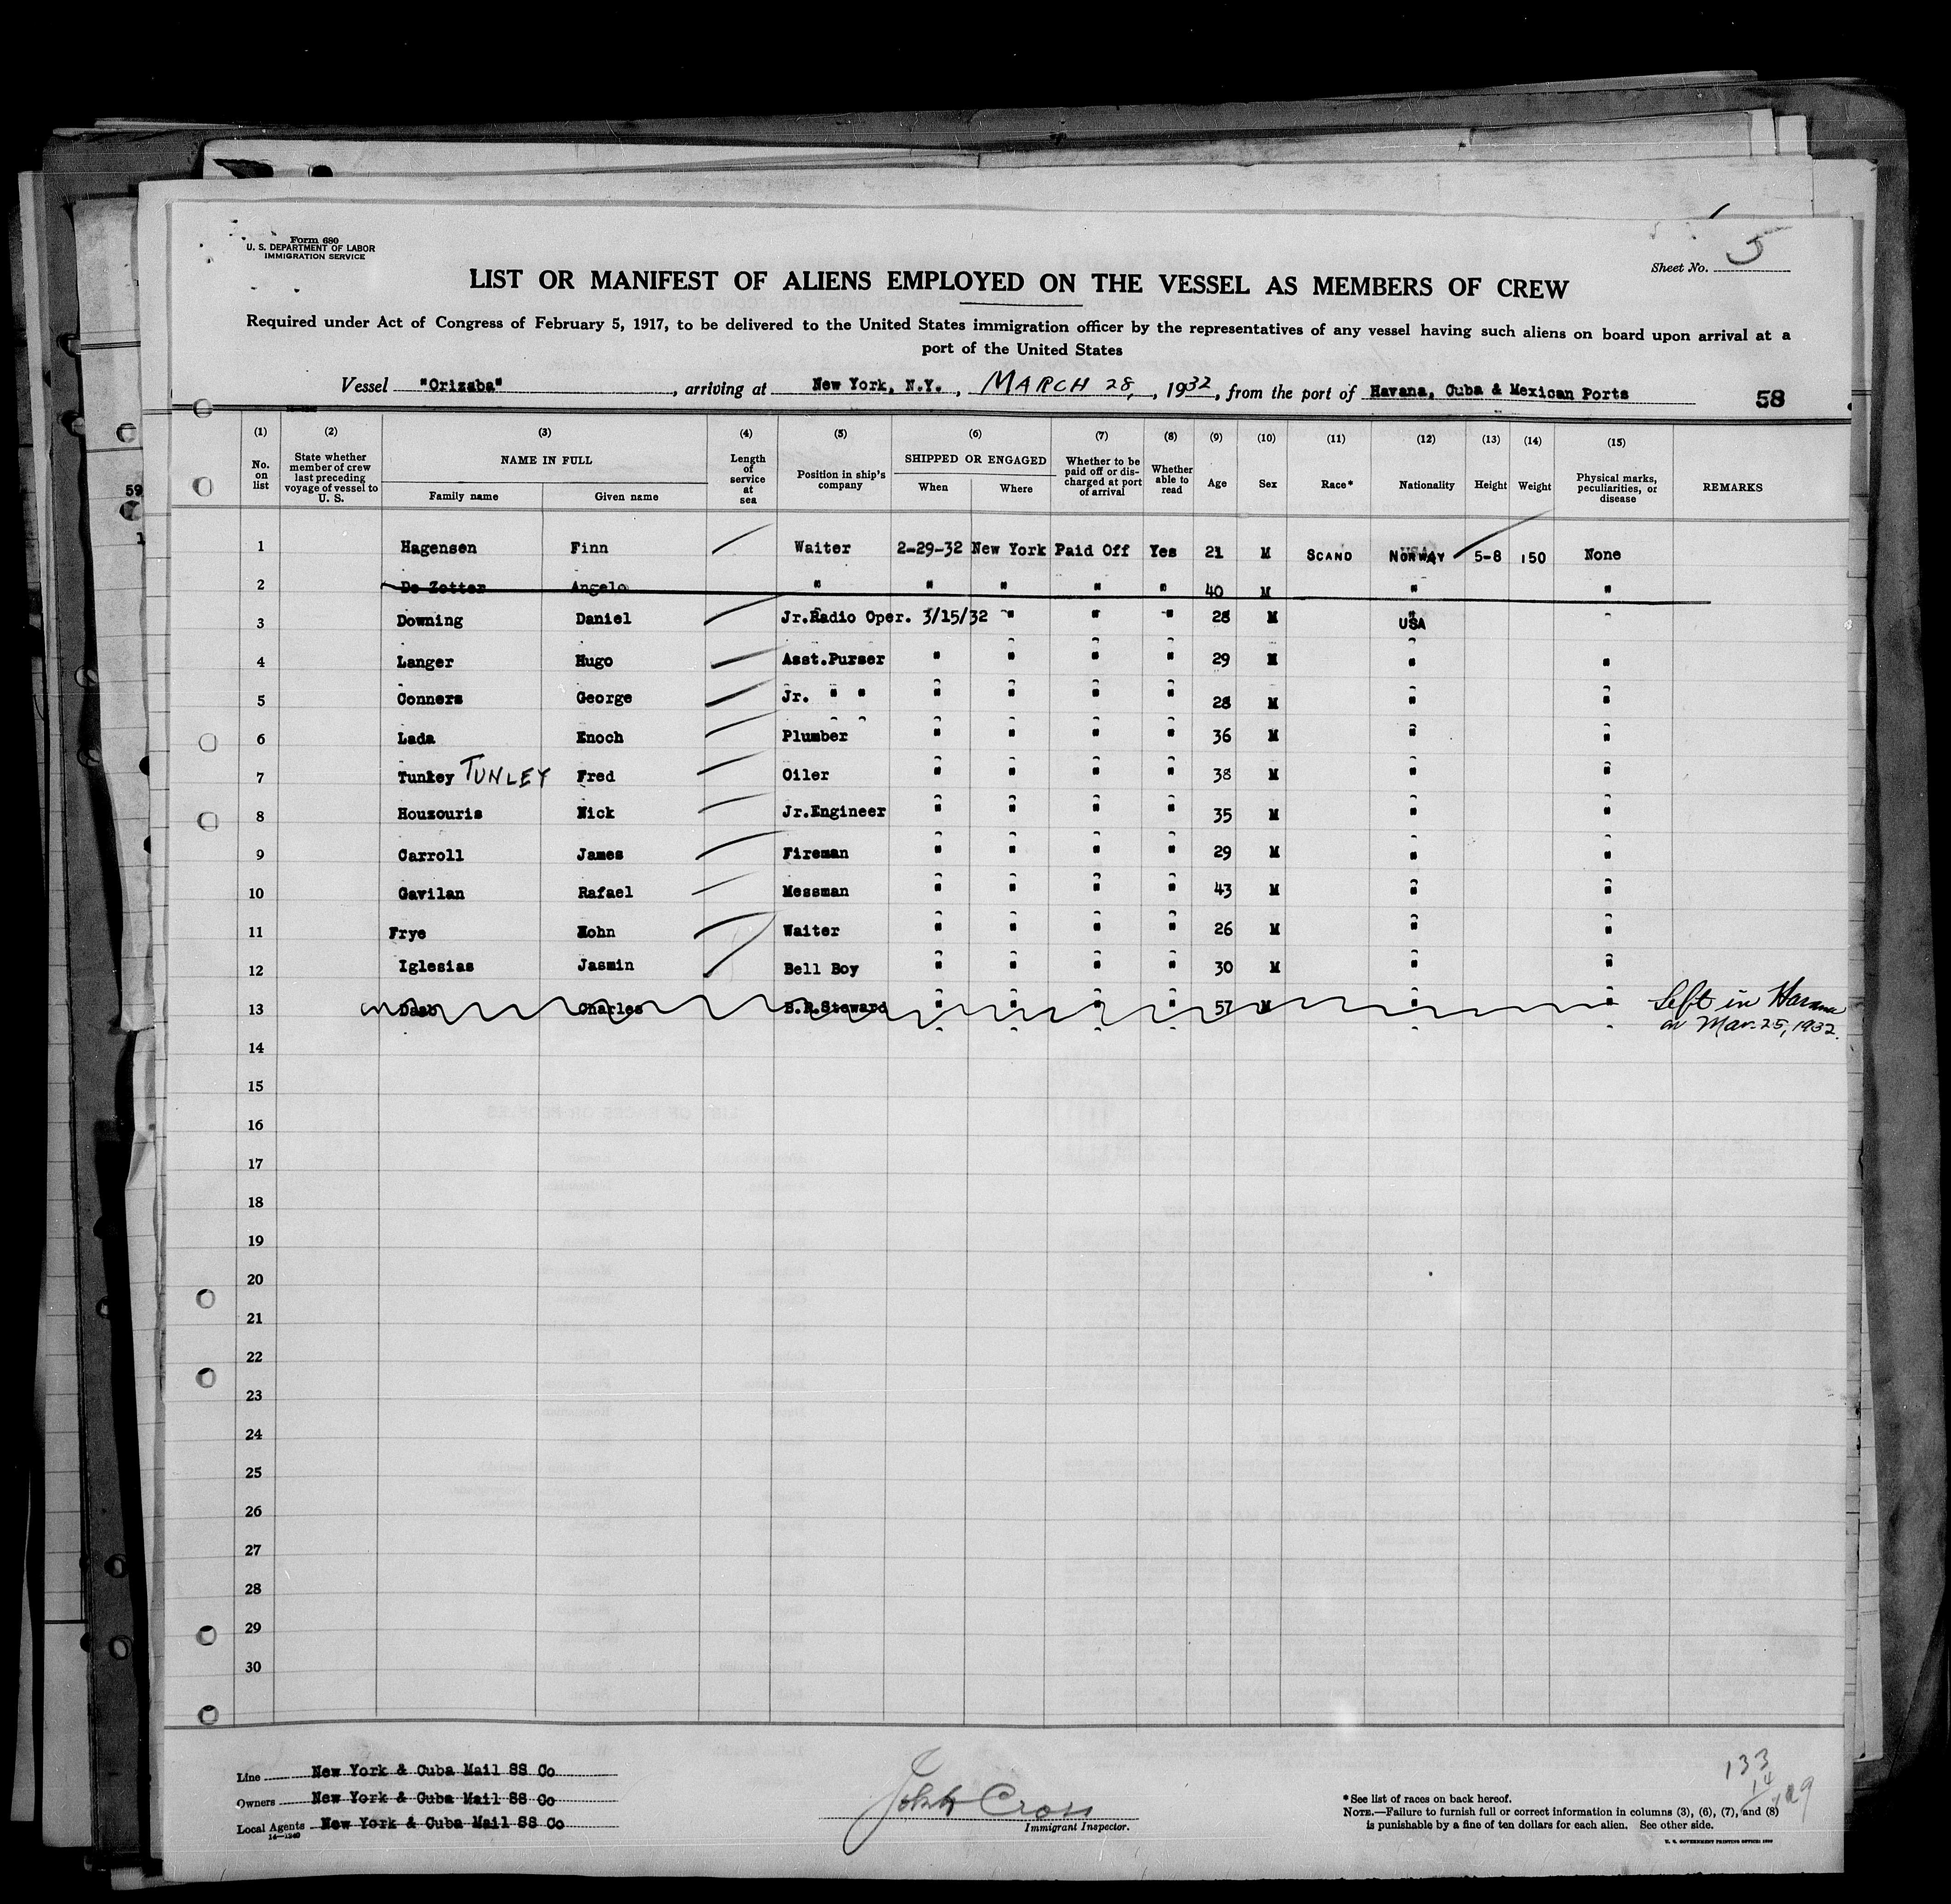 Form 680
U. S. DEPARTMENT OF LABOR
IMMIGRATION SERVICE
Sheet No. 5
LIST OR MANIFEST OF ALIENS EMPLOYED ON THE VESSEL AS MEMBERS OF CREW
Required under Act of Congress of February 5, 1917, to be delivered to the United States immigration officer by the representatives of any vessel having such aliens on board upon arrival at a
port of the United States
Vessel "Orizaba", arriving at New York, N.Y., MARCH 28, 1932, from the port of Havana, Cuba & Mexican Ports 58
(1) (2) (3) (4) (5) (6) (7) (8) (9) (10) (11) (12) (13) (14) (15)
No. on list State whether member of crew last preceding voyage of vessel to U. S. NAME IN FULL Family name Given name Length of service at sea Position in ship's company SHIPPED OR ENGAGED When Where Whether to be paid off or discharged at port of arrival Whether able to read Age Sex Race* Nationality Height Weight Physical marks, peculiarities, or disease REMARKS
1 Hagensen Finn Waiter 2-29-32 New York Paid Off Yes 21 M SCAND NORWAY 5-8 150 None
2 De Zotter Angelo " " " " " 40 M " "
3 Downing Daniel Jr.Radio Oper. 3/15/32 " " " 28 M USA
4 Langer Hugo Asst.Purser " " " " 29 M " "
5 Conners George Jr. " " " " " " 28 M " "
6 Lada Enoch Plumber " " " " 36 M " "
7 Tunkey TUNLEY Fred Oiler " " " " 38 M " "
8 Houzouris Nick Jr.Engineer " " " " 35 M " "
9 Carroll James Fireman " " " " 29 M " "
10 Gavilan Rafael Messman " " " " 43 M " "
11 Frye Kohn Waiter " " " " 26 M " "
12 Iglesias Jasmin Bell Boy " " " " 30 M " "
13 Dasb Charles B.R.Steward " " " " 57 M " " Left in Havana
on Mar. 25, 1932.
14
15
16
17
18
19
20
21
22
23
24
25
26
27
28
29
30
Line New York & Cuba Mail SS Co
Owners New York & Cuba Mail SS Co
Local Agents New York & Cuba Mail SS Co
14—1240
John Cross
Immigrant Inspector.
133
14
*See list of races on back hereof.
NOTE.—Failure to furnish full or correct information in columns (3), (6), (7), and (8)
is punishable by a fine of ten dollars for each alien. See other side.
59